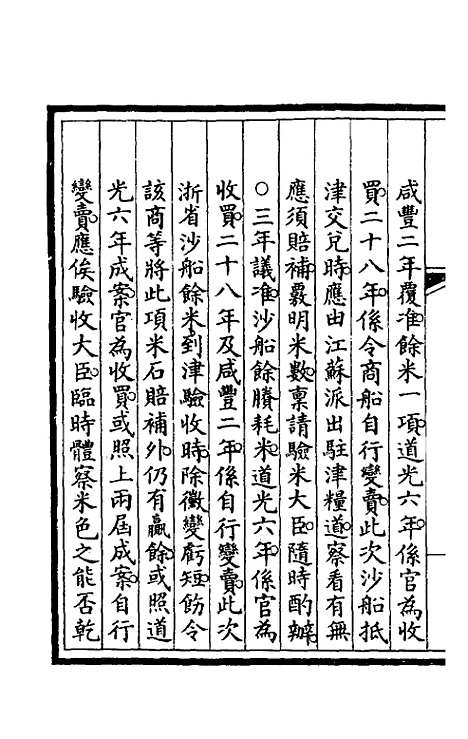 咸豐二年覆准餘米一項道光六年係官為收
買二十八年係令商船自行變賣此次沙船抵
津交兌時應由江蘇派出駐津糧道察看有無
應須賠補覈明米數稟請驗米大臣隨時酌辦
○三年議准沙船餘賸耗米道光六年係官為
收買二十八年及咸豐二年係自行變賣此次
浙省沙船餘米到津驗收時除黴變虧短飭令
該商等將此項米石賠補外仍有贏餘或照道
光六年成案官為收買或照上兩屆成案自行
變賣應俟驗收大臣臨時體察米色之能否乾